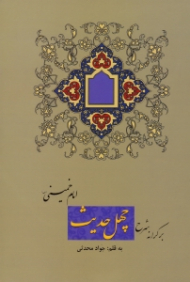 امام خمینی
چهل حدیث
به قلم: جواد محدثی